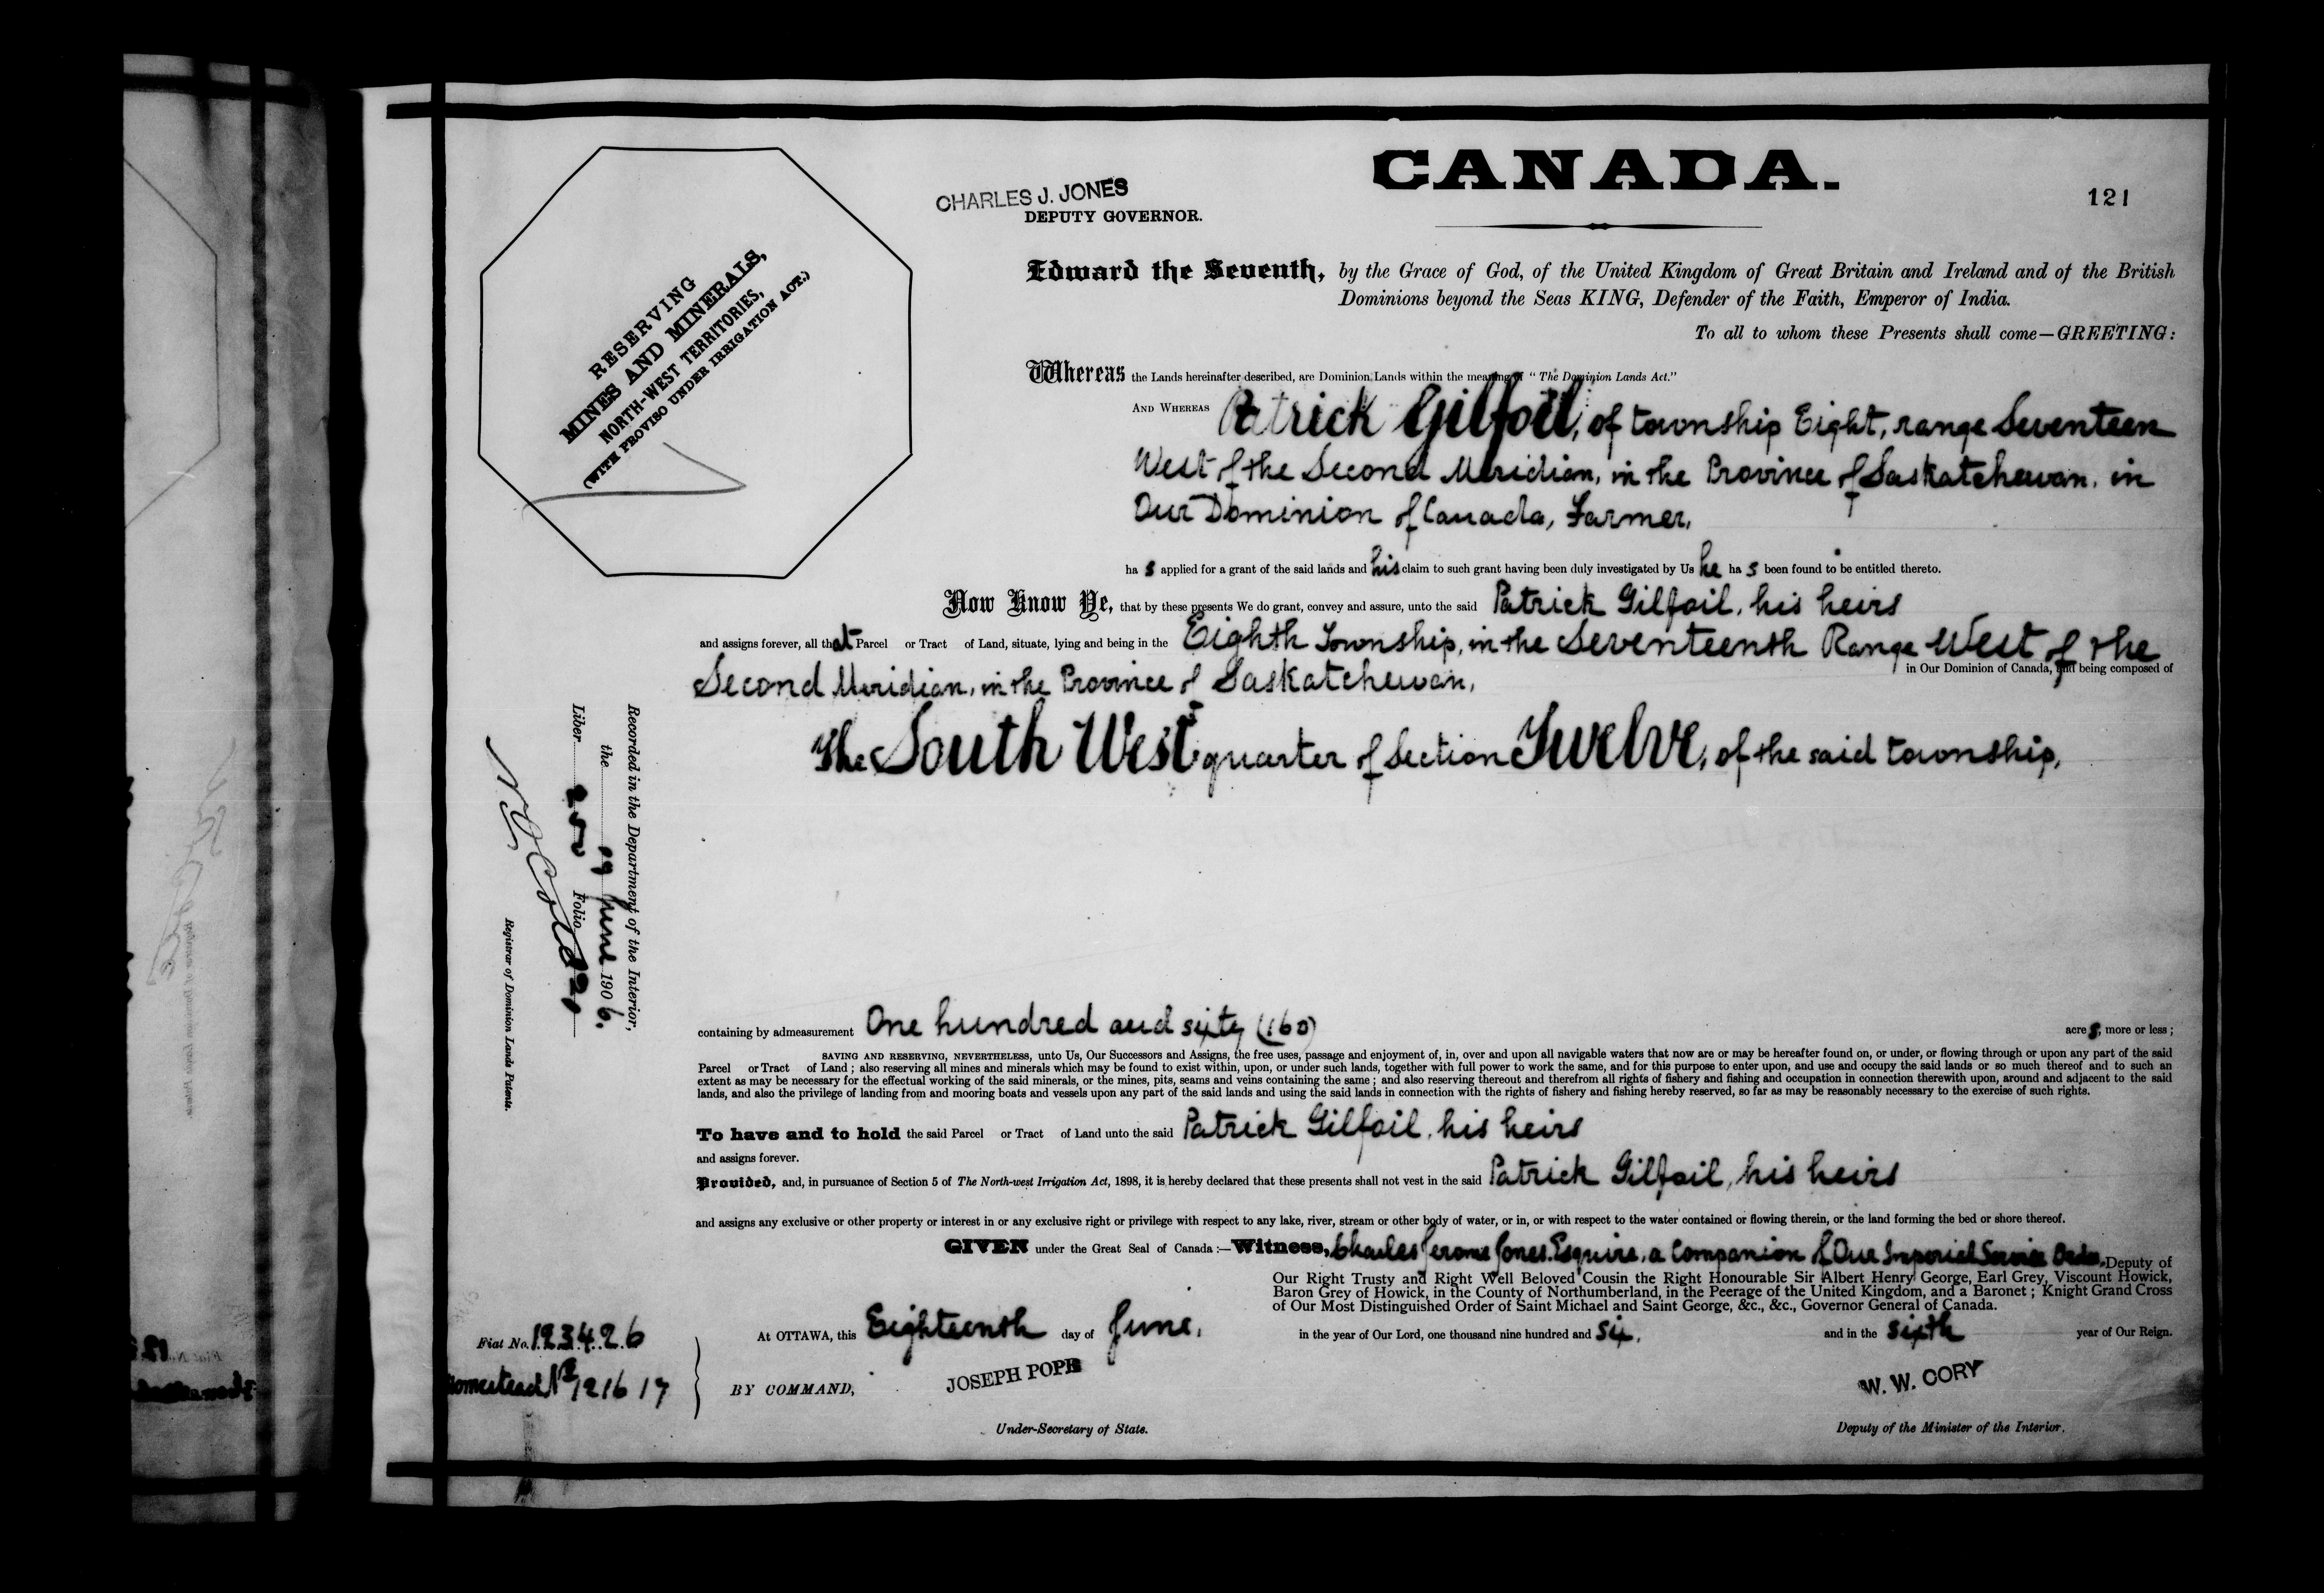 CANADA.
121
CHARLES J. JONES
DEPUTY GOVERNOR.
RESERVING
MINES AND MINERALS,
NORTH-WEST TERRITORIES,
(WITH PROVISO UNDER IRRIGATION ACT.)
Edward the Seventh, by the Grace of God, of the United Kingdom of Great Britain and Ireland and of the British
Dominions beyond the Seas KING, Defender of the Faith, Emperor of India.
To all to whom these Presents shall come—GREETING:
Whereas the Lands hereinafter described, are Dominion Lands within the meaning of "The Dominion Lands Act."
AND WHEREAS Patrick Gilfoil, of township Eight, range Seventeen
West of the Second Meridian, in the Province of Saskatchewan, in
Our Dominion of Canada, Farmer,
has applied for a grant of the said lands and his claim to such grant having been duly investigated by Us he has been found to be entitled thereto.
Now Know Ye, that by these presents We do grant, convey and assure, unto the said Patrick Gilfoil, his heirs
and assigns forever, all that Parcel or Tract of Land, situate, lying and being in the Eighth Township, in the Seventeenth Range West of the
Second Meridian, in the Province of Saskatchewan, in Our Dominion of Canada, and being composed of
The South West quarter of Section Twelve, of the said township,
Recorded in the Department of the Interior,
the 19 June 1906.
Liber Folio
Registrar of Dominion Lands Patents.
containing by admeasurement One hundred and sixty (160) acres, more or less;
SAVING AND RESERVING, NEVERTHELESS, unto Us, Our Successors and Assigns, the free uses, passage and enjoyment of, in, over and upon all navigable waters that now are or may be hereafter found on, or under, or flowing through or upon any part of the said
Parcel or Tract of Land; also reserving all mines and minerals which may be found to exist within, upon, or under such lands, together with full power to work the same, and for this purpose to enter upon, and use and occupy the said lands or so much thereof and to such an
extent as may be necessary for the effectual working of the said minerals, or the mines, pits, seams and veins containing the same; and also reserving thereout and therefrom all rights of fishery and fishing and occupation in connection therewith upon, around and adjacent to the said
lands, and also the privilege of landing from and mooring boats and vessels upon any part of the said lands and using the said lands in connection with the rights of fishery and fishing hereby reserved, so far as may be reasonably necessary to the exercise of such rights.
To have and to hold the said Parcel or Tract of Land unto the said Patrick Gilfoil, his heirs
and assigns forever.
Provided, and, in pursuance of Section 5 of The North-west Irrigation Act, 1898, it is hereby declared that these presents shall not vest in the said Patrick Gilfoil, his heirs
and assigns any exclusive or other property or interest in or any exclusive right or privilege with respect to any lake, river, stream or other body of water, or in, or with respect to the water contained or flowing therein, or the land forming the bed or shore thereof.
GIVEN under the Great Seal of Canada:—Witness, Charles Jerome Jones. Esquire, a Companion of Our Imperial Service Order, Deputy of
Our Right Trusty and Right Well Beloved Cousin the Right Honourable Sir Albert Henry George, Earl Grey, Viscount Howick,
Baron Grey of Howick, in the County of Northumberland, in the Peerage of the United Kingdom, and a Baronet; Knight Grand Cross
of Our Most Distinguished Order of Saint Michael and Saint George, &c., &c., Governor General of Canada.
At OTTAWA, this Eighteenth day of June, in the year of Our Lord, one thousand nine hundred and six, and in the sixth year of Our Reign.
Fiat No. 123426
Homestead No 121617
BY COMMAND,
JOSEPH POPE
Under-Secretary of State.
W. W. CORY
Deputy of the Minister of the Interior.